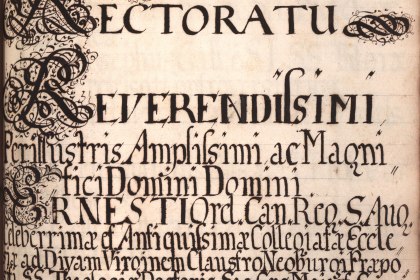 RECTORATU
REVERENDIſSIMI
Perilluſtris Ampliſsimi, ac Magni
fici Domini Domini
ERNESTI Ord. Can. Reg. S. Aug.
Celeberrimæ et Antiquiſsimæ Collegiatæ Eccle
ad Divam Virginem Clauſtro Neoburgi Præpo
SS. Theologiæ Doctoris